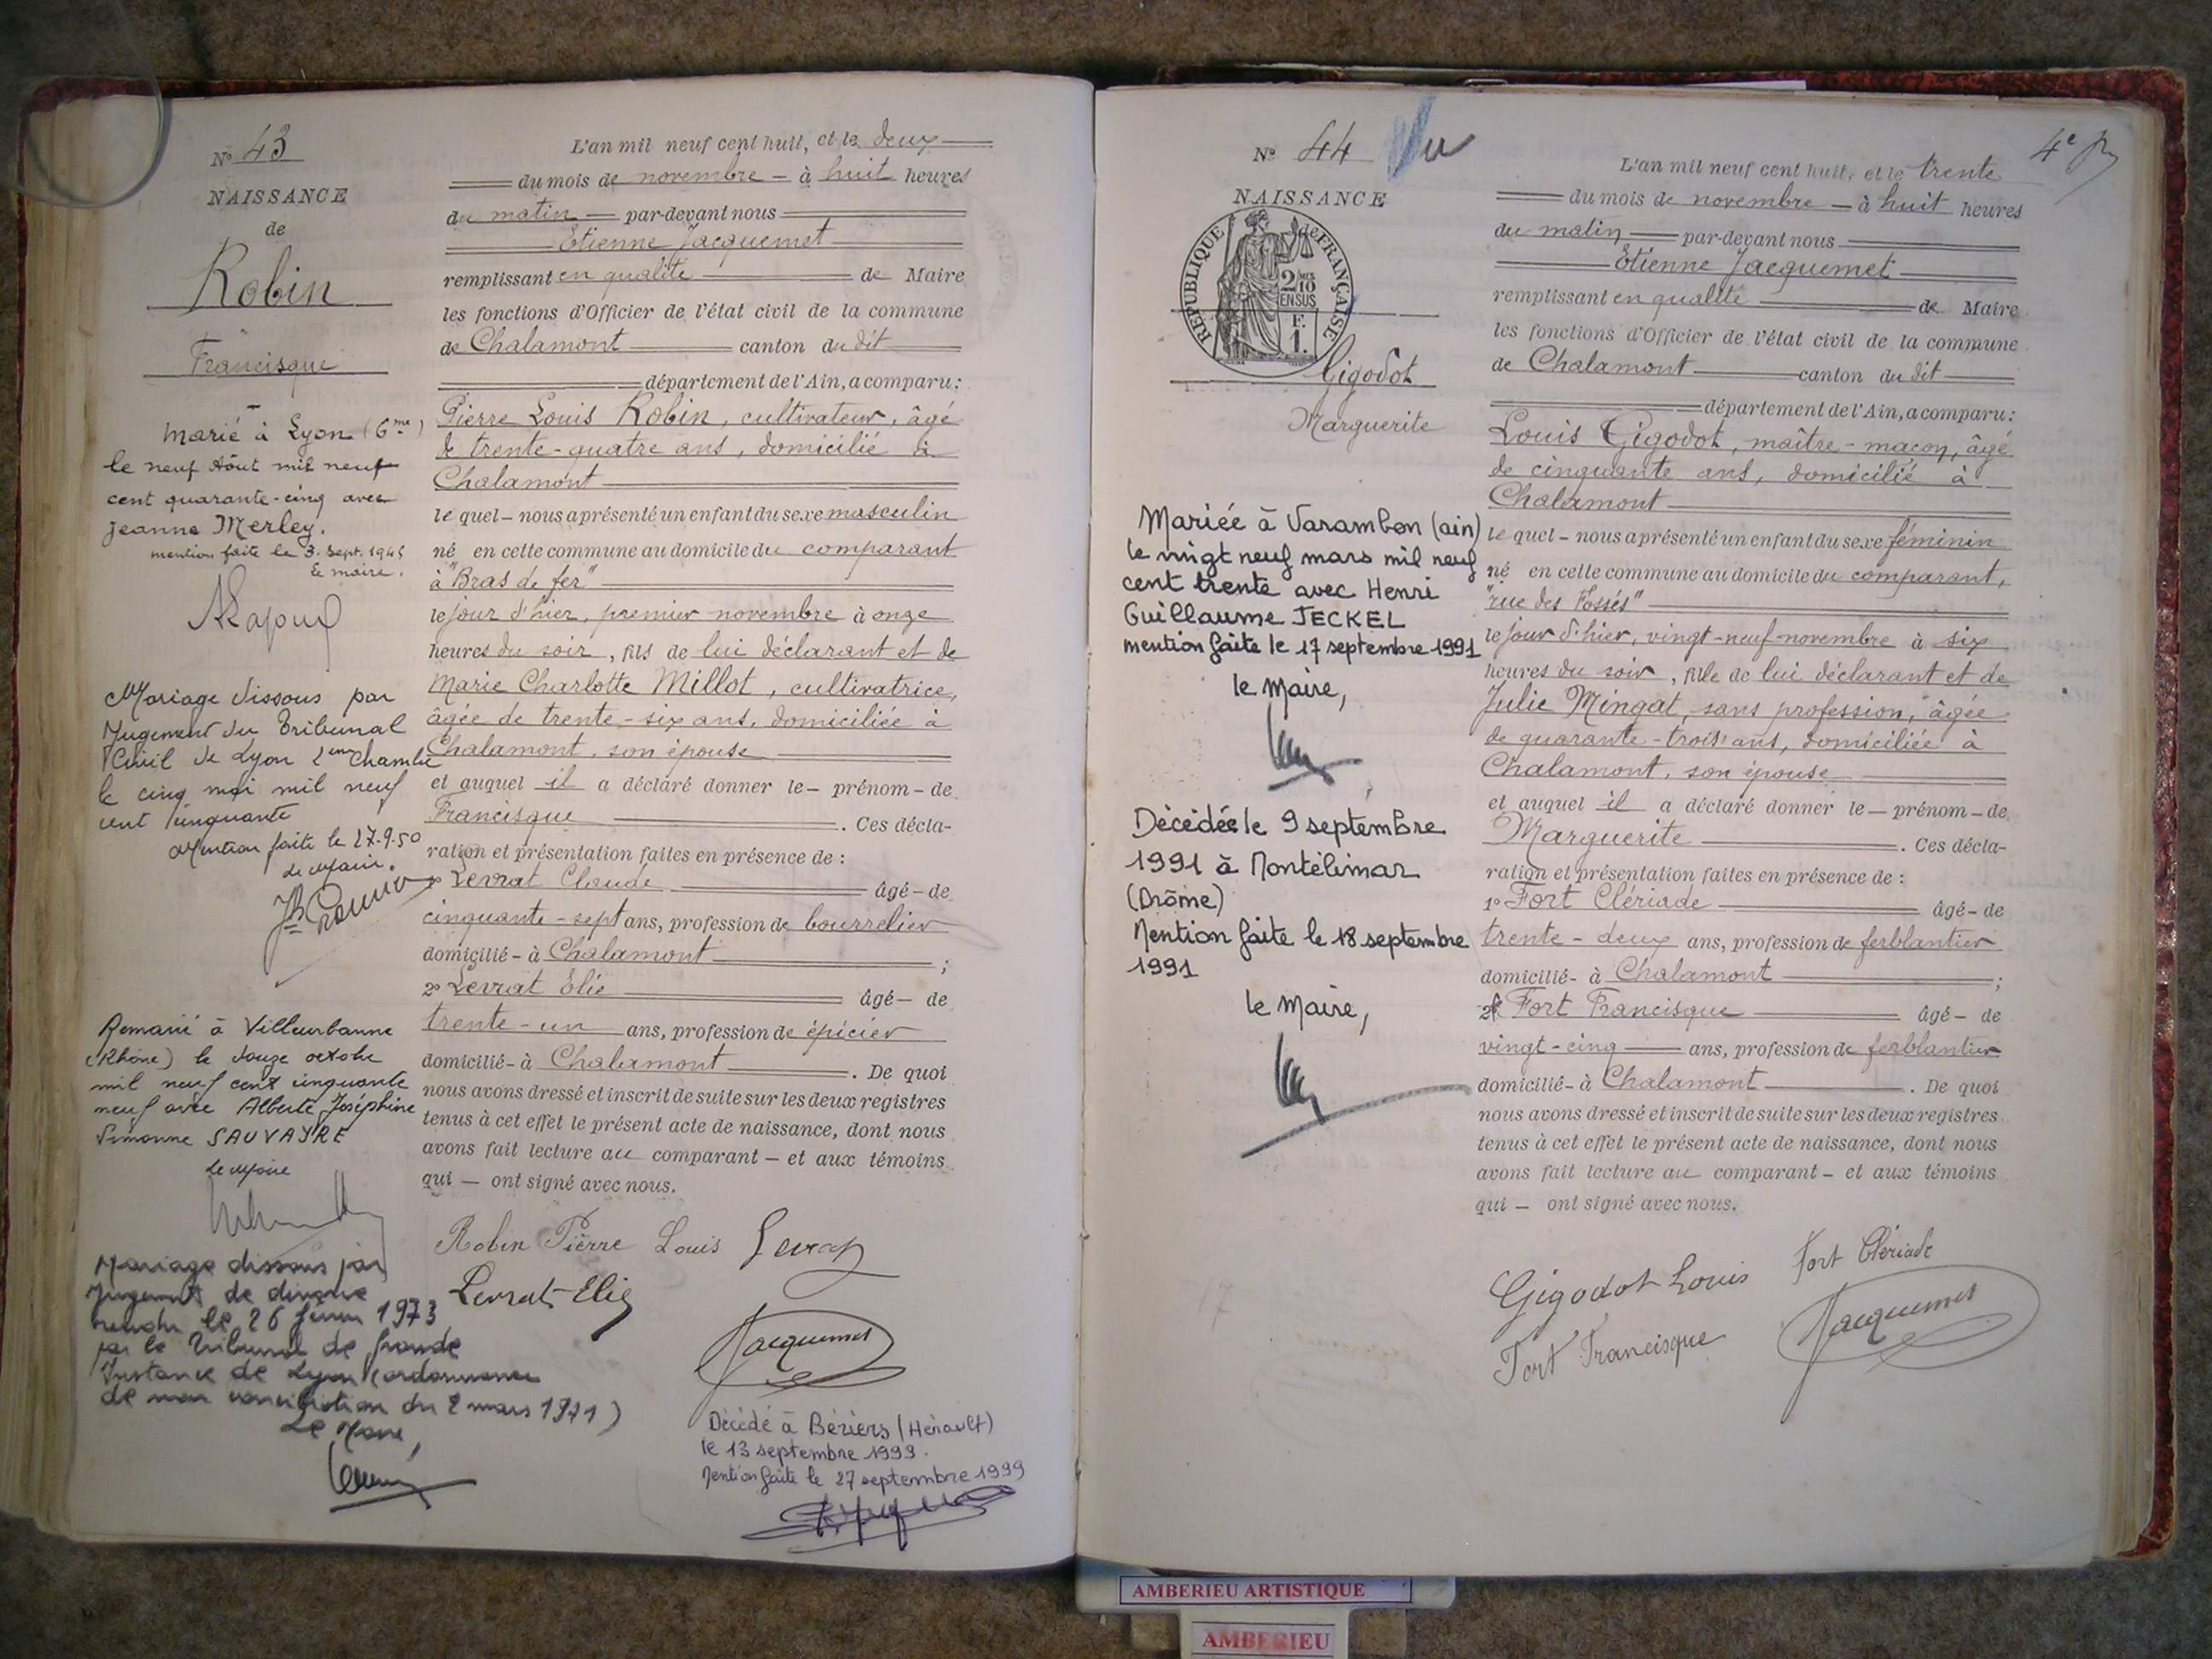 N° 43
NAISSANCE
de
Robin
Francisque
Marié à Lyon (6me)
le neuf Août mil neuf
cent quarante-cinq avec
Jeanne Merley.
mention faite le 3. Sept. 1945
Le maire.
Mariage dissous par
Jugement du Tribunal
Civil de Lyon 2eme Chambre
le cinq mai mil neuf
cent cinquante
Mention faite le 27-9-50
Le Maire.
Remarié à Villeurbanne
(Rhône) le douze octobre
mil neuf cent cinquante
neuf avec Alberte Joséphine
Simonne SAUVAYRE
Le Maire
Mariage dissous par
Jugement de divorce
rendu le 26 février 1973
par le Tribunal de Grande
Instance de Lyon (ordonnance
de non conciliation du 2 mars 1971)
Le Maire,
L'an mil neuf cent huit, et le deux
du mois de novembre - à huit heures
du matin par-devant nous
Etienne Jacquemet
remplissant en qualité de Maire
les fonctions d'Officier de l'état civil de la commune
de Chalamont canton du dit
département de l'Ain, a comparu:
Pierre Louis Robin, cultivateur, âgé
de trente-quatre ans, domicilié à
Chalamont
le quel - nous a présenté un enfant du sexe masculin
né en cette commune au domicile du comparant
à "Bras de fer"
le jour d'hier, premier novembre à onze
heures du soir, fils de lui déclarant et de
Marie Charlotte Millot, cultivatrice,
âgée de trente-six ans, domiciliée à
Chalamont, son épouse
et auquel il a déclaré donner le - prénom - de
Francisque . Ces décla-
ration et présentation faites en présence de :
1° Levrat Claude âgé - de
cinquante-sept ans, profession de bourrelier
domicilié - à Chalamont ;
2° Levrat Elie âgé - de
trente-un ans, profession de épicier
domicilié - à Chalamont . De quoi
nous avons dressé et inscrit de suite sur les deux registres
tenus à cet effet le présent acte de naissance, dont nous
avons fait lecture au comparant - et aux témoins
qui - ont signé avec nous.
Robin Pierre Louis Levrat
Levrat Elie
Jacquemet
Décédé à Béziers (Hérault)
le 13 septembre 1999.
Mention faite le 27 septembre 1999
N° 44 Vu
NAISSANCE
REPUBLIQUE de FRANÇAISE
2/10
EN SUS
F.
1.
Gigodot
Marguerite
Mariée à Varambon (ain)
le vingt neuf mars mil neuf
cent trente avec Henri
Guillaume JECKEL
mention faite le 17 septembre 1991
le Maire,
Décédée le 9 septembre
1991 à Montélimar
(Drôme)
Mention faite le 18 septembre
1991
le Maire,
4e
L'an mil neuf cent huit, et le trente
du mois de novembre - à huit heures
du matin par-devant nous
Etienne Jacquemet
remplissant en qualité de Maire
les fonctions d'Officier de l'état civil de la commune
de Chalamont canton du dit
département de l'Ain, a comparu:
Louis Gigodot, maître-maçon, âgé
de cinquante ans, domicilié à
Chalamont
le quel - nous a présenté un enfant du sexe féminin
né en cette commune au domicile du comparant,
"rue des Fossés"
le jour d'hier, vingt-neuf novembre à six
heures du soir, fille de lui déclarant et de
Julie Mingat, sans profession, âgée
de quarante-trois ans, domiciliée à
Chalamont, son épouse
et auquel il a déclaré donner le - prénom - de
Marguerite . Ces décla-
ration et présentation faites en présence de :
1° Fort Clériade âgé - de
trente-deux ans, profession de ferblantier
domicilié - à Chalamont ;
2° Fort Francisque âgé - de
vingt-cinq ans, profession de ferblantier
domicilié - à Chalamont . De quoi
nous avons dressé et inscrit de suite sur les deux registres
tenus à cet effet le présent acte de naissance, dont nous
avons fait lecture au comparant - et aux témoins
qui - ont signé avec nous.
Gigodot Louis Fort Clériade
Fort Francisque Jacquemet
AMBERIEU ARTISTIQUE
AMBERIEU